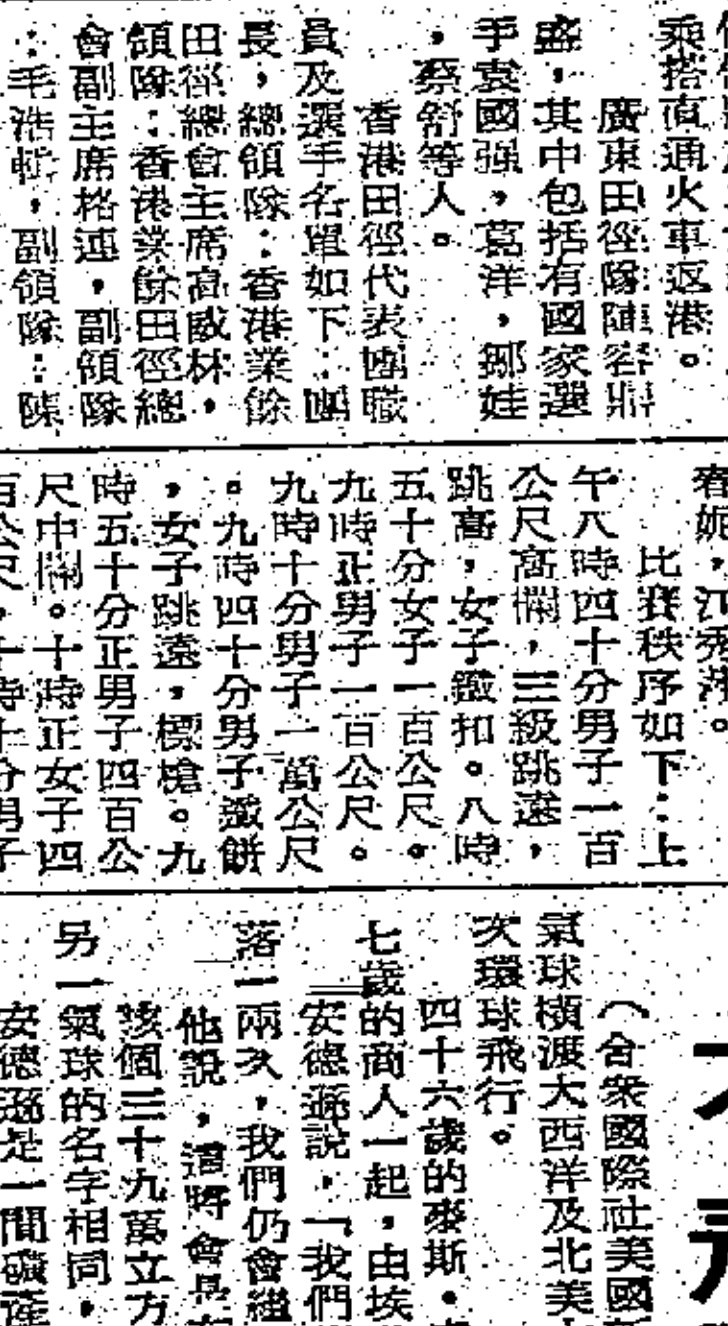 乘搭直通火車返港。
廣東田徑隊陣容鼎
盛,其中包括有國家選
手袁國强,葛洋,鄒娃
,蔡舒等人。
香港田徑代表團職
員及選手名單如下:團
長,總領隊:香港業餘
田徑總會主席高威林,
領隊:香港業餘田徑總
會副主席格連,副領隊
:毛浩輝,副領隊:陳
春妮,江秀萍。
比賽秩序如下:上
午八時四十分男子一百
公尺高欄,三級跳遠,
跳高,女子鐵扣。八時
五十分女子一百公尺。
九時正男子一百公尺。
九時十分男子一萬公尺
。九時四十分男子鐵餅
,女子跳遠,標槍。九
時五十分正男子四百公
尺中欄。十時正女子四
百公尺,十時十分男子
(合衆國際社美國
氣球橫渡大西洋及北美
次環球飛行。
四十六歲的麥斯·
七歲的商人一起,由埃
安德遜說,「我們
落一兩次,我們仍會繼
他說,這將會是
該個三十九萬立方
另一氣球的名字相同,
安德遜是一間礦產